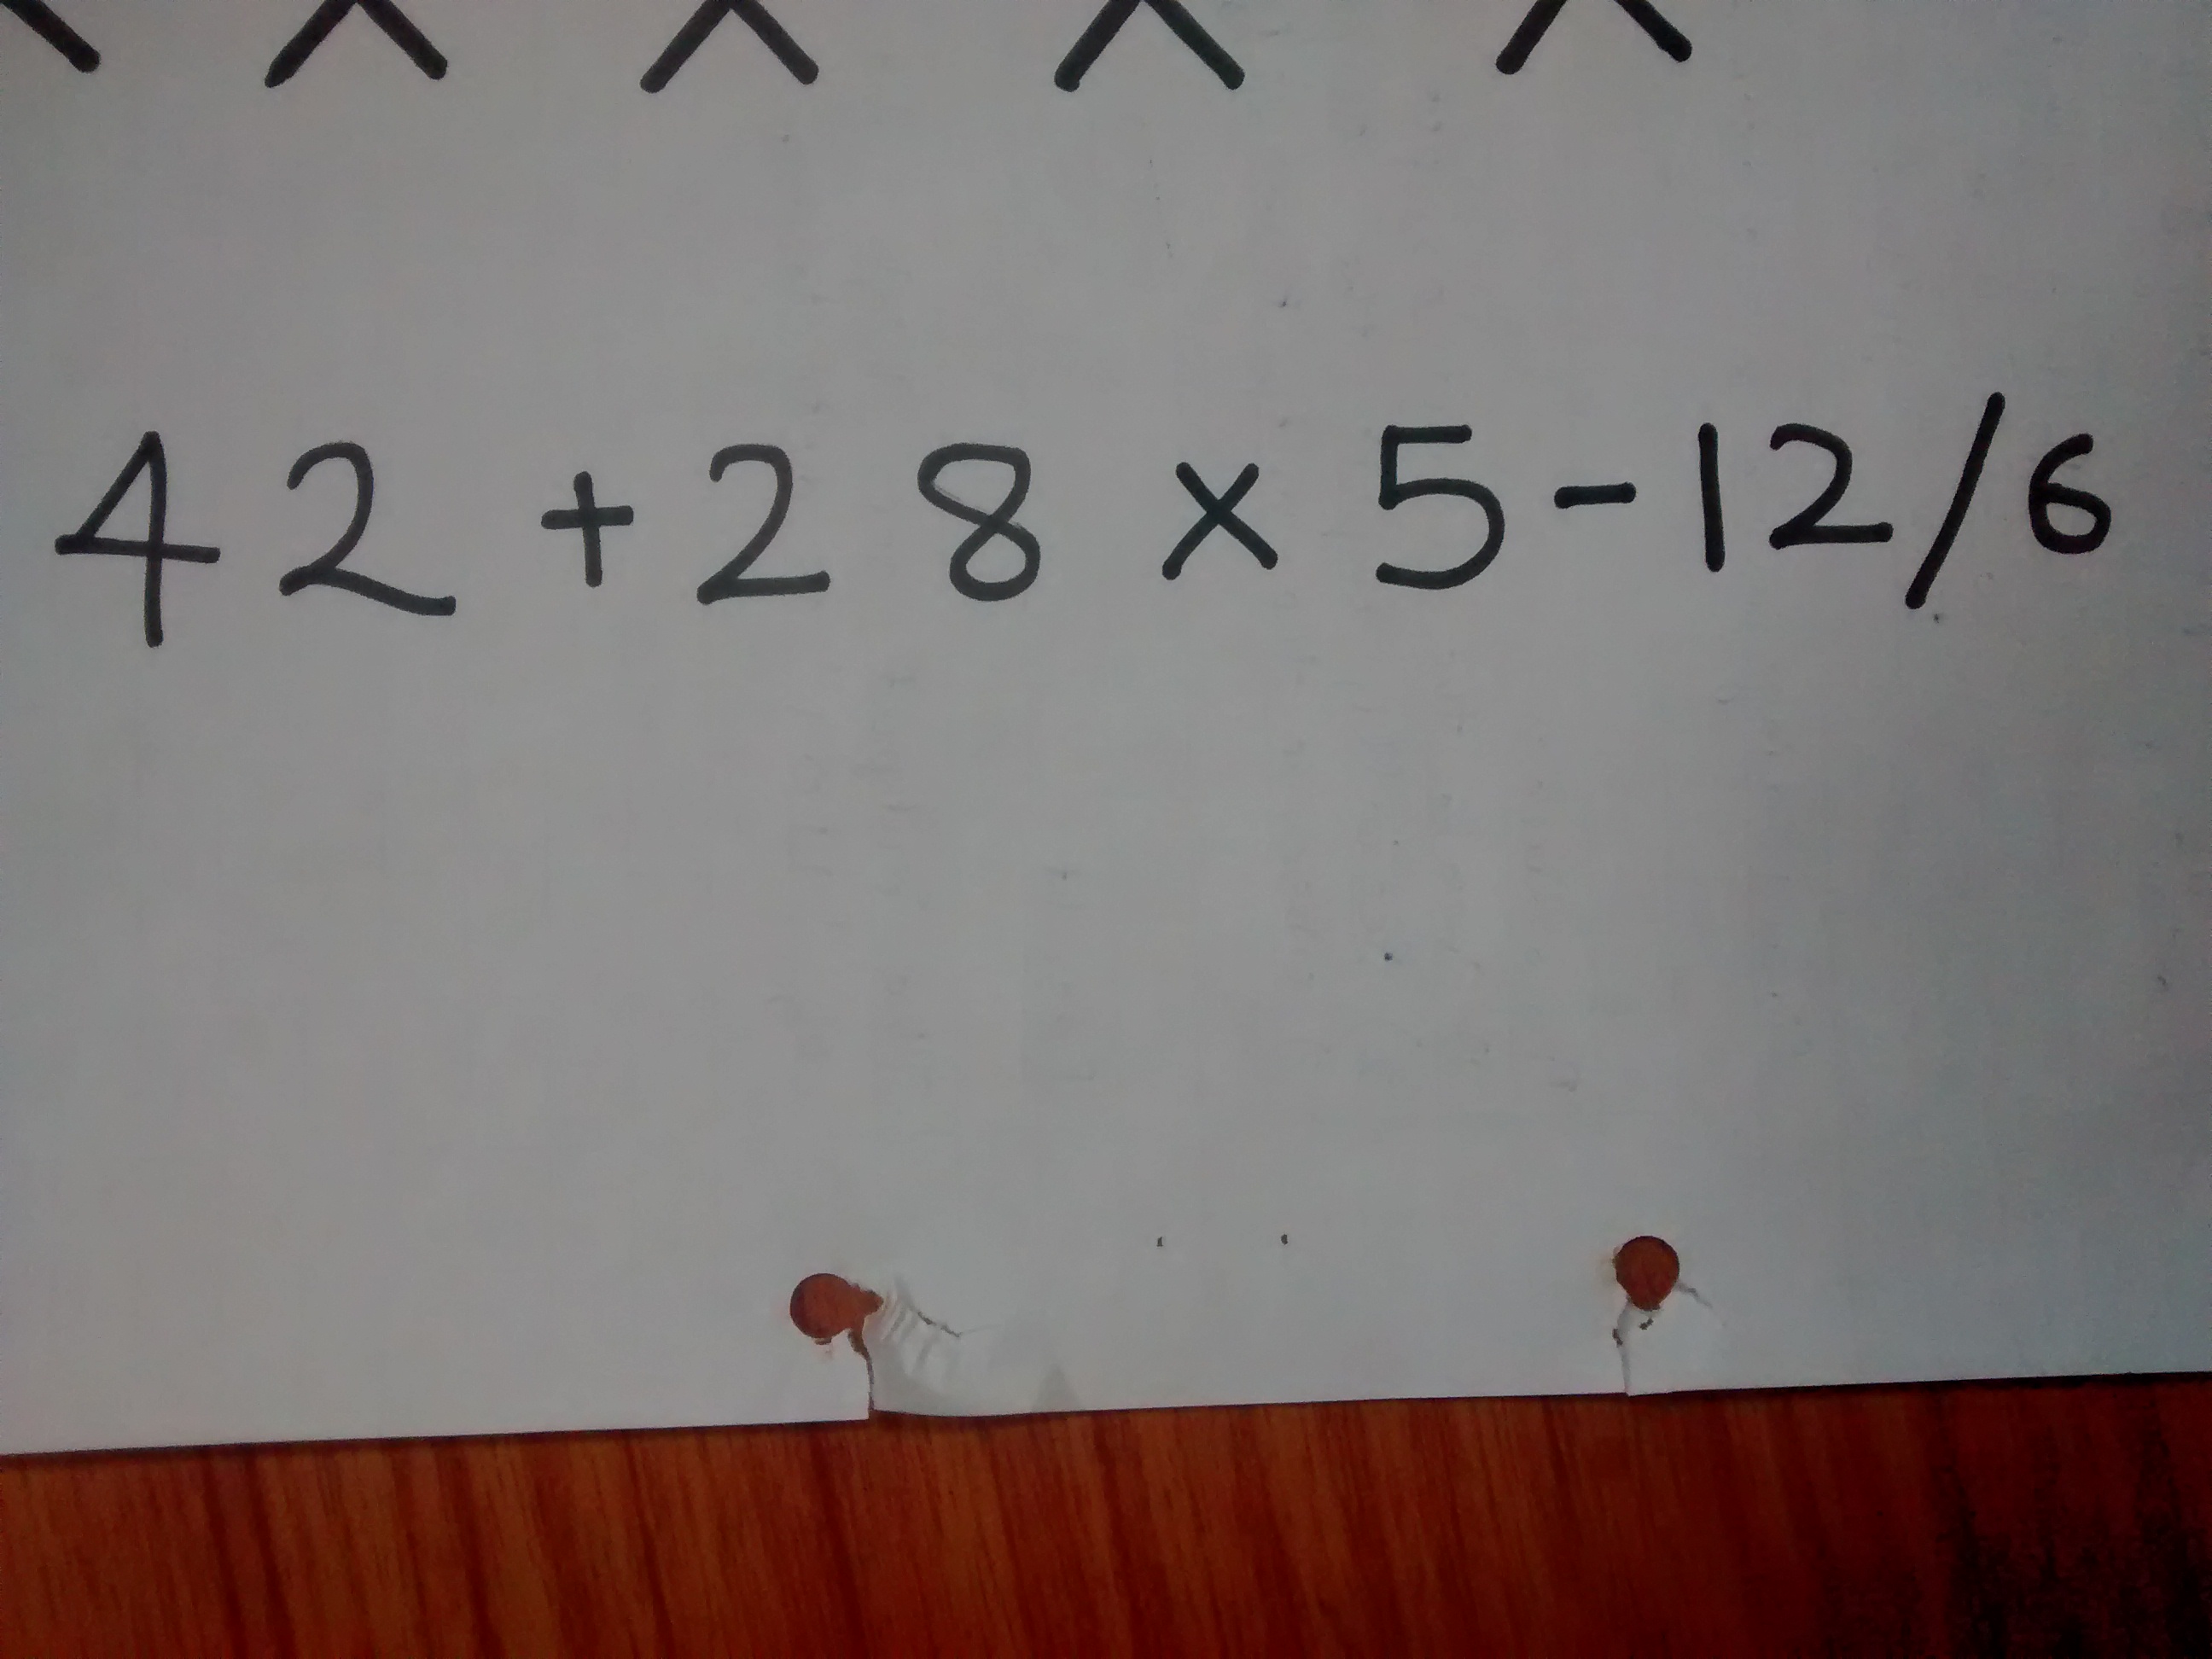 42 + 28 × 5 - 12 / 6